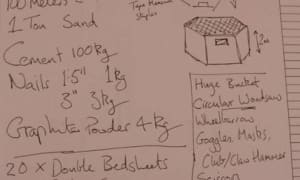 100 Meters
Tape Measure
Staples
1 Ton Sand
Cement 100kg
Nails 1.5" 1kg
3" 3kg
Graphite Powder 4kg
20 x Double Bedsheets
2m
Huge Bucket
Circular Woodsaw
Wheelbarrow
Goggles, Masks,
Club/Claw Hammer
Scissors